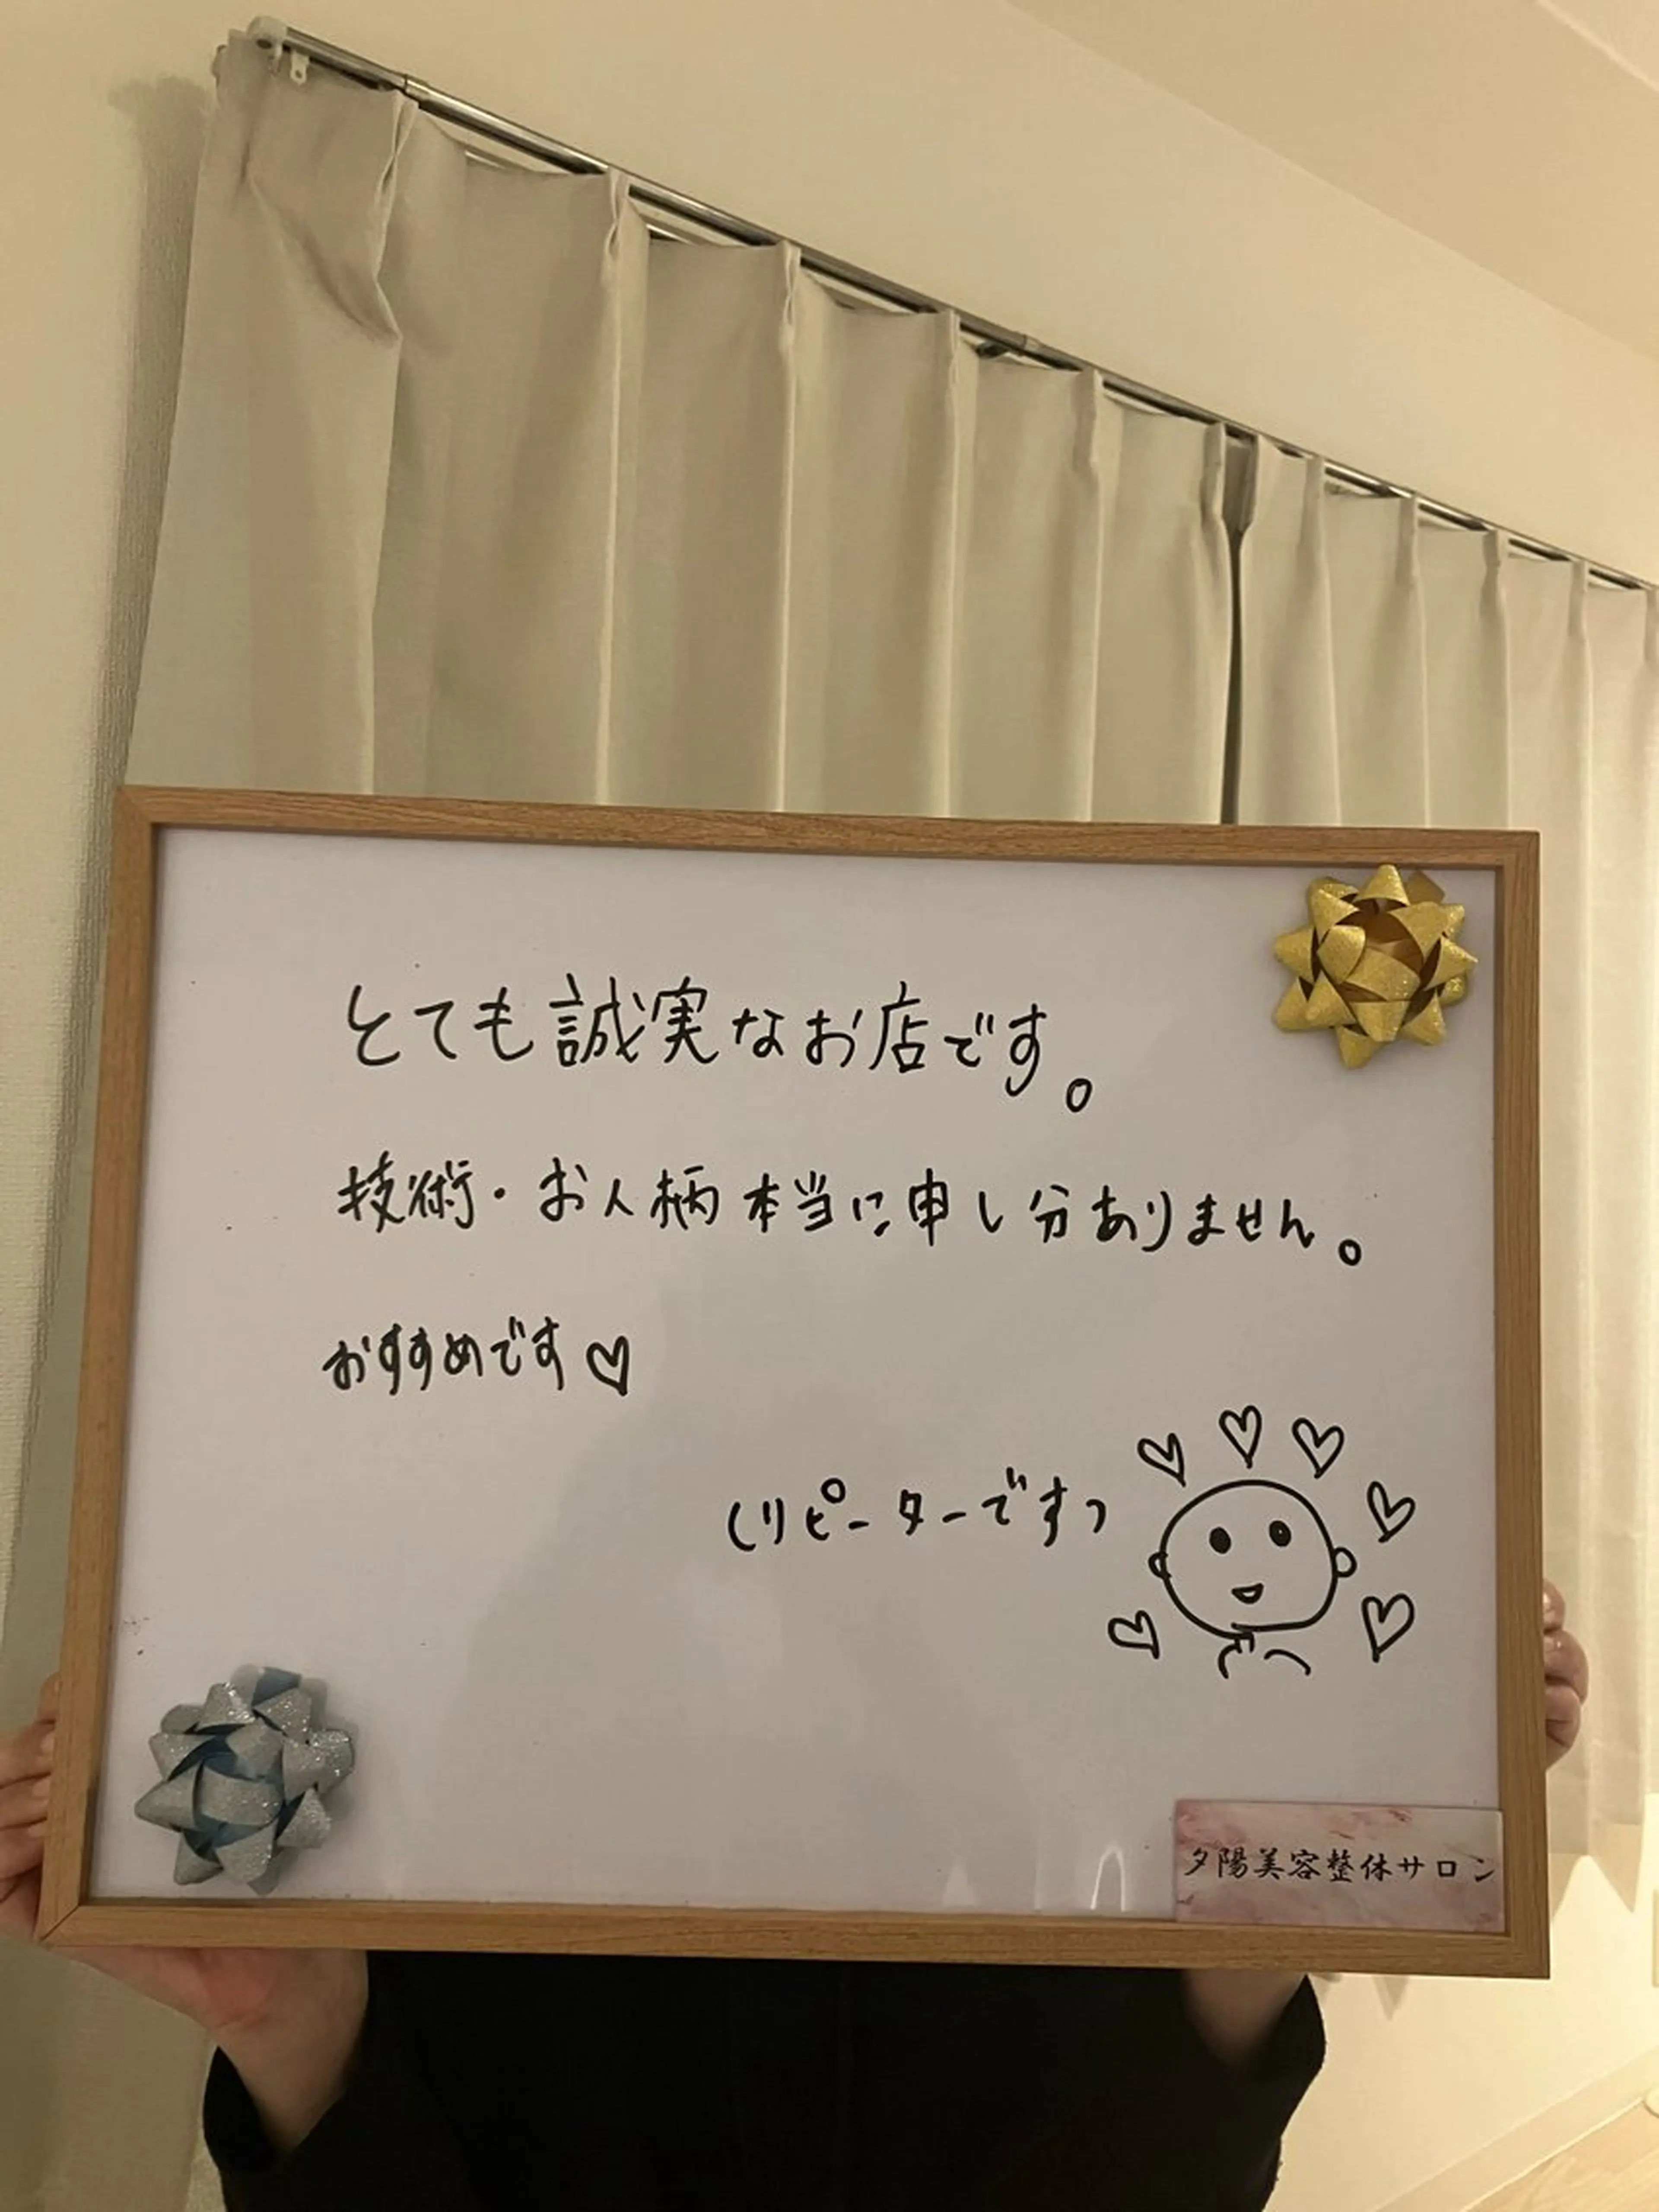 とても誠実なお店です。
技術・お人柄本当に申し分ありません。
おすすめです♡
(リピーターです)
夕陽美容整体サロン